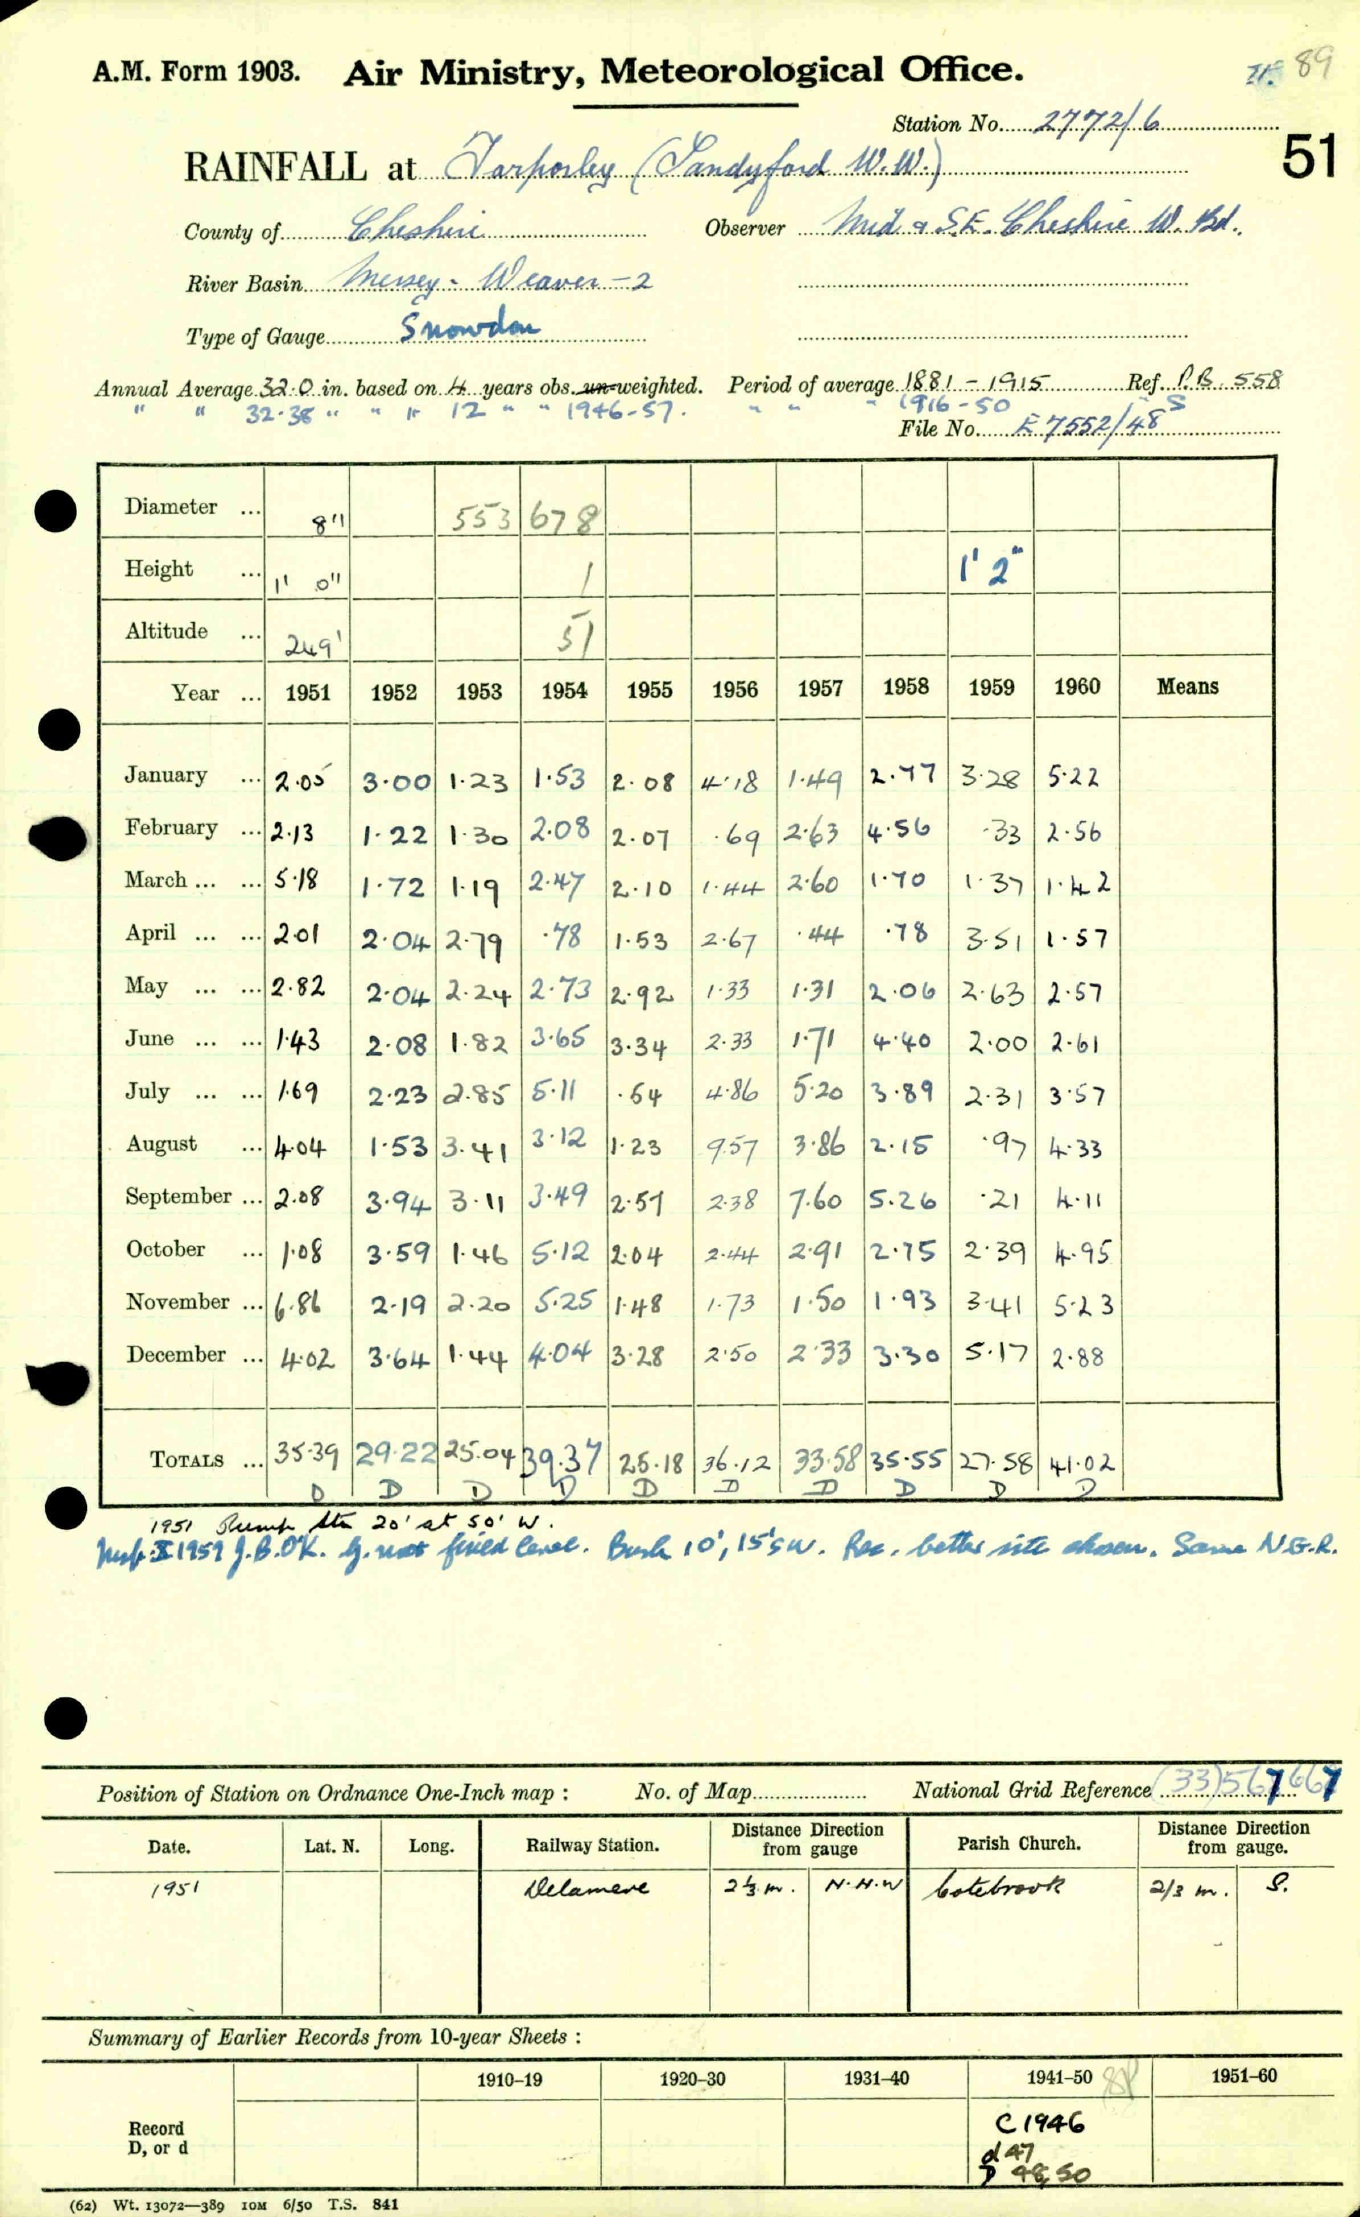 A.M. Form 1903. Air Ministry, Meteorological Office. 89
Station No. 2772/6
51
RAINFALL at Tarporley (Sandyford W.W.)
County of Cheshire Observer Mid & S.E. Cheshire W. Bd.
River Basin Mersey - Weaver - 2
Type of Gauge Snowdon
Annual Average 32.0 in. based on 4 years obs. un-weighted. Period of average 1881 - 1915 Ref. P.B. 558
" " 32.38 " " " 12 " " 1946-57. " " " 1916-50 " S
File No. E 7552/48
Diameter ... 8" 553 678
Height ... 1' 0" 1 1' 2"
Altitude ... 249' 51
Year ... 1951 1952 1953 1954 1955 1956 1957 1958 1959 1960 Means
January ... 2.05 3.00 1.23 1.53 2.08 4.18 1.49 2.77 3.28 5.22
February ... 2.13 1.22 1.30 2.08 2.07 .69 2.63 4.56 .33 2.56
March ... ... 5.18 1.72 1.19 2.47 2.10 1.44 2.60 1.70 1.37 1.42
April ... ... 2.01 2.04 2.79 .78 1.53 2.67 .44 .78 3.51 1.57
May ... ... 2.82 2.04 2.24 2.73 2.92 1.33 1.31 2.06 2.63 2.57
June ... ... 1.43 2.08 1.82 3.65 3.34 2.33 1.71 4.40 2.00 2.61
July ... ... 1.69 2.23 2.85 5.11 .54 4.86 5.20 3.89 2.31 3.57
August ... 4.04 1.53 3.41 3.12 1.23 9.57 3.86 2.15 .97 4.33
September ... 2.08 3.94 3.11 3.49 2.57 2.38 7.60 5.26 .21 4.11
October ... 1.08 3.59 1.46 5.12 2.04 2.44 2.91 2.75 2.39 4.95
November ... 6.86 2.19 2.20 5.25 1.48 1.73 1.50 1.93 3.41 5.23
December ... 4.02 3.64 1.44 4.04 3.28 2.50 2.33 3.30 5.17 2.88
TOTALS ... 35.39 29.22 25.04 39.37 25.18 36.12 33.58 35.55 27.58 41.02
D D D D D D D D D D
1951 Pump Stn 20' at 50' W.
Insp. X 1959 J.B. O'K. G. not fixed level. Bush 10', 15' SW. Rec. better site chosen. Same N.G.R.
Position of Station on Ordnance One-Inch map : No. of Map National Grid Reference (33) 567 667
Date. Lat. N. Long. Railway Station. Distance Direction from gauge Parish Church. Distance Direction from gauge.
1951 Delamere 2⅓ m. N.N.W Cotebrook 2/3 m. S.
Summary of Earlier Records from 10-year Sheets :
1910–19 1920–30 1931–40 1941–50 1951–60
Record D, or d
C 1946
d 47
D 48, 50
(62) Wt. 13072—389 10M 6/50 T.S. 841